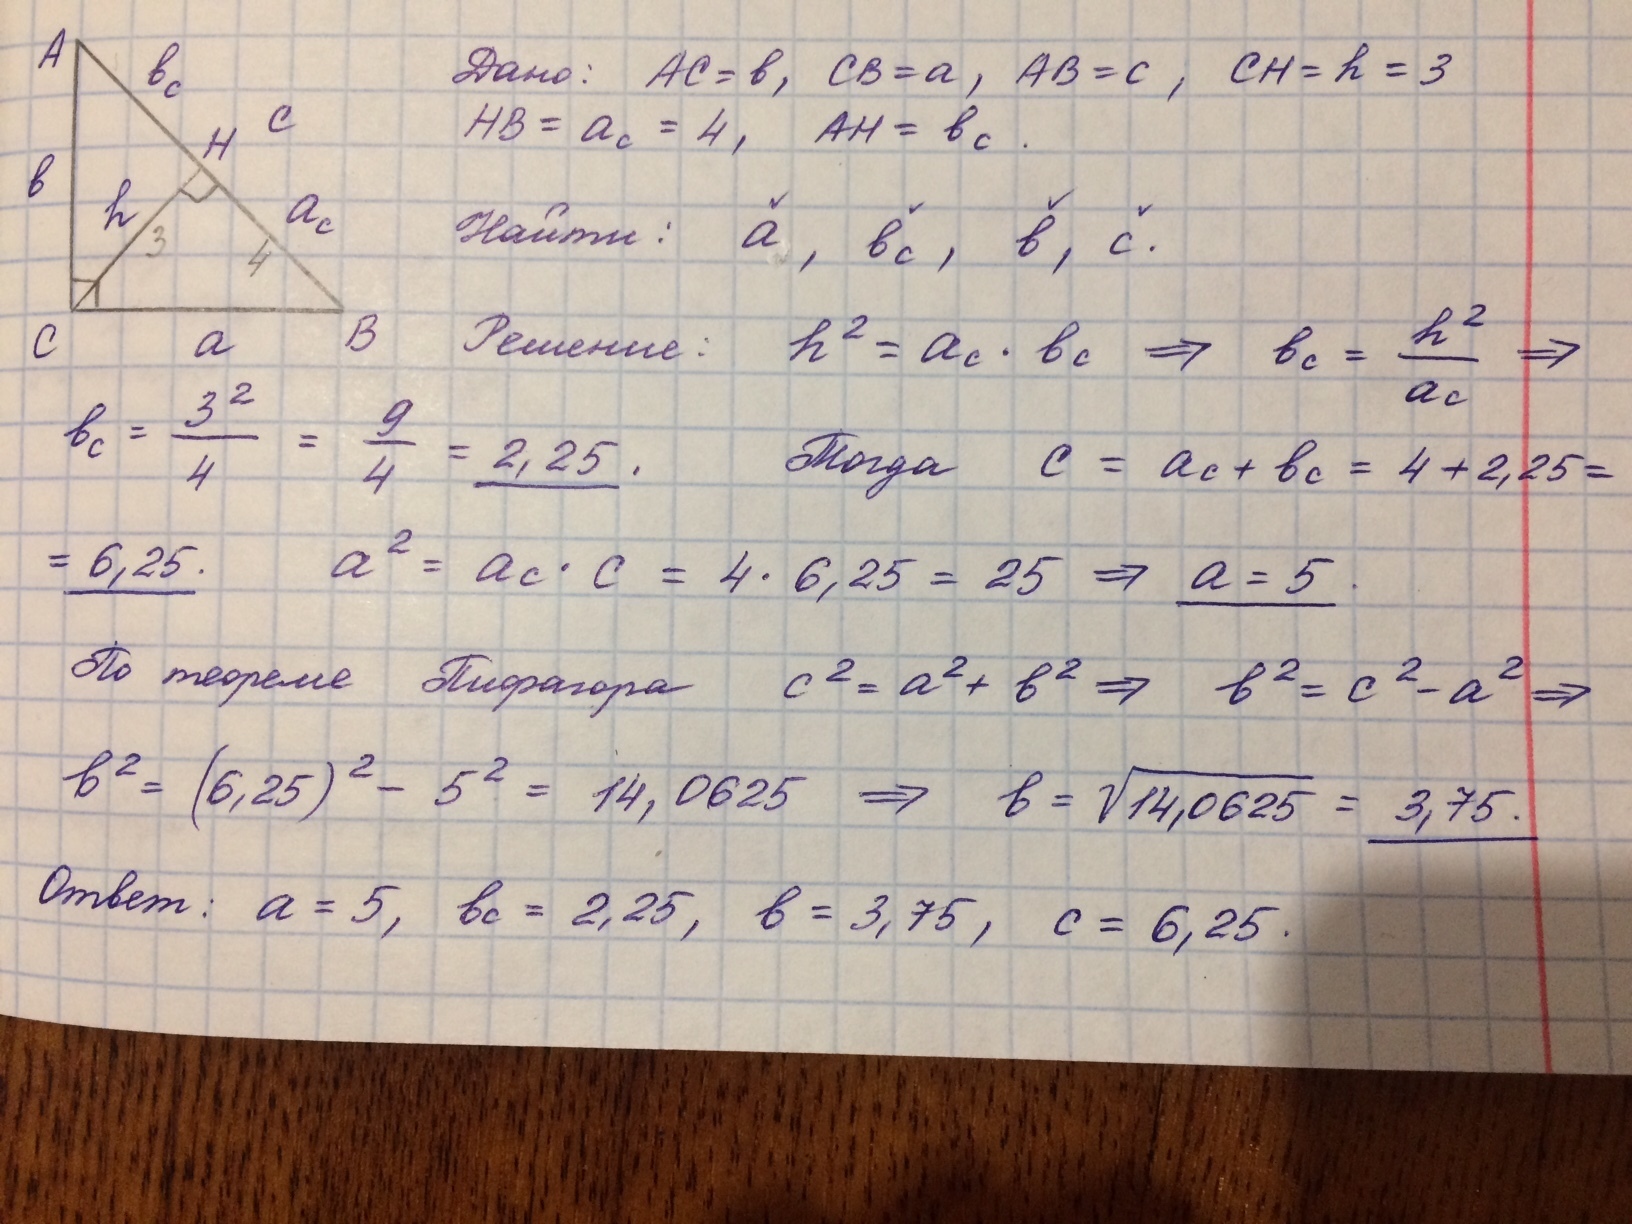 A
b_c
H
c
b
h
3
a_c
4
C
a
B
Дано: AC = b, CB = a, AB = c, CH = h = 3
HB = a_c = 4, AH = b_c.
Найти: a, b_c, b, c.
Решение: h² = a_c · b_c ⇒ b_c = h²/a_c ⇒
b_c = 3²/4 = 9/4 = 2,25. Тогда c = a_c + b_c = 4 + 2,25 =
= 6,25. a² = a_c · c = 4 · 6,25 = 25 ⇒ a = 5.
По теореме Пифагора c² = a² + b² ⇒ b² = c² - a² ⇒
b² = (6,25)² - 5² = 14,0625 ⇒ b = √14,0625 = 3,75.
Ответ: a = 5, b_c = 2,25, b = 3,75, c = 6,25.